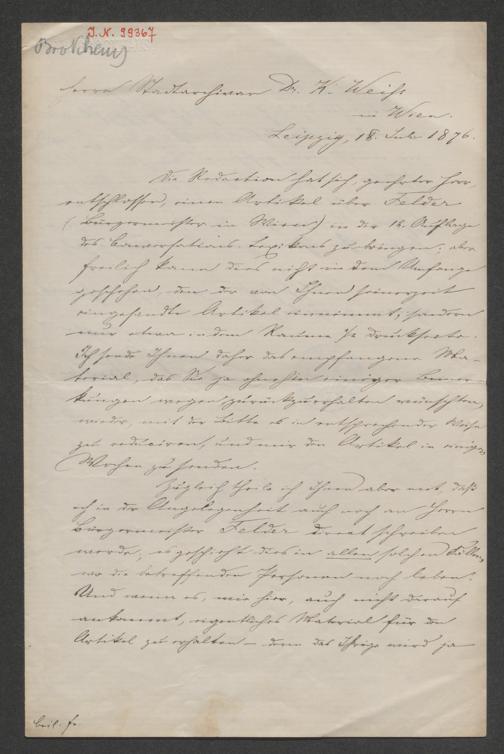 J. N. 99367
Brockhaus
Herrn Stadtarchivar Dr. K. Weiß
in Wien.
Leipzig, 18. Juli 1876.
Die Redaction hat sich, geehrter Herr,
entschlossen, einen Artikel über Felder
(Bürgermeister in Wien) in der 12. Auflage
des Conversations-Lexikons zu bringen; aber
freilich kann dies nicht in dem Umfange
geschehen, den der von Ihnen seinerzeit
eingesandte Artikel einnimmt, sondern
nur etwa in dem Raume ½ Druckseite.
Ich sende Ihnen daher das empfangene Ma-
terial, das Sie ja ohnehin einiger Bemer-
kungen wegen zurückzuerhalten wünschten,
wieder, mit der Bitte es in entsprechender Weise
zu reduciren, und mir den Artikel in einigen
Wochen zu senden.
Zugleich theile ich Ihnen aber mit, daß
ich in der Angelegenheit auch noch an Herrn
Bürgermeister Felder direct schreiben
werde; es geschieht dies in allen solchen Fällen,
wo die betreffenden Personen noch leben.
Und wenn es, wie hier, auch nicht darauf
ankommt, eigentliches Material für den
Artikel zu erhalten – denn das Ihrige wird ja